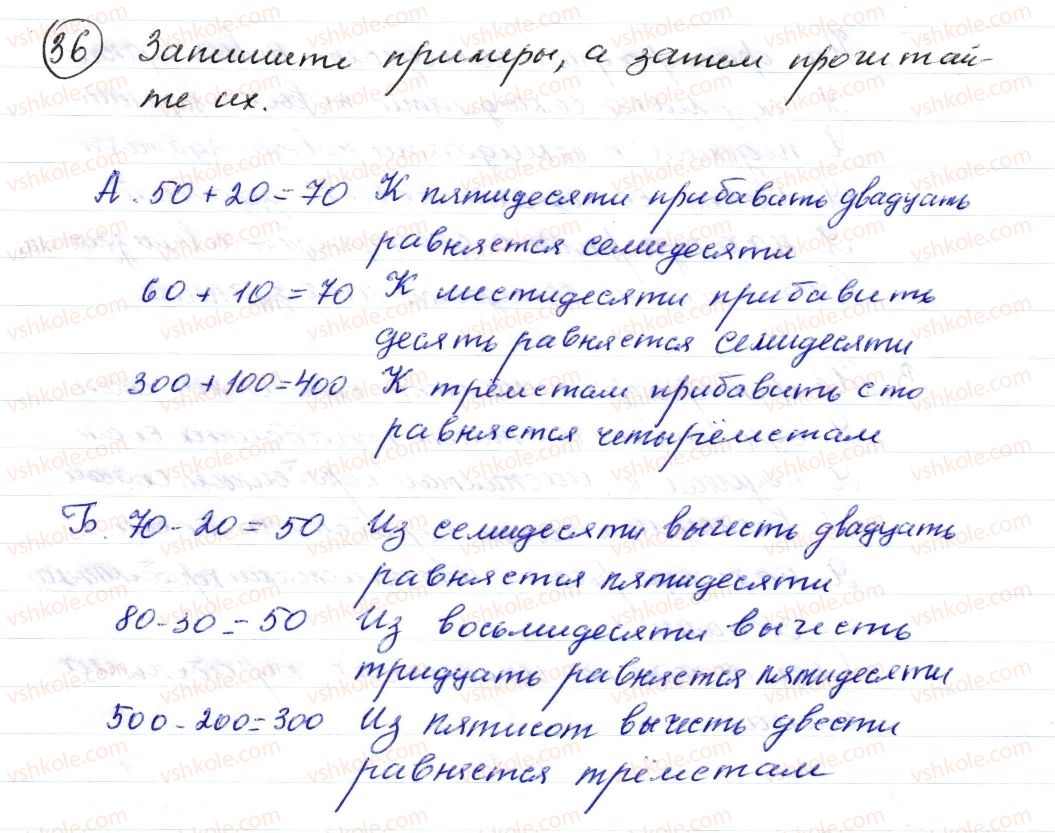 36 Запишите примеры, а затем прочитай-
те их.
А. 50 + 20 = 70 К пятидесяти прибавить двадцать
равняется семидесяти
60 + 10 = 70 К шестидесяти прибавить
десять равняется семидесяти
300 + 100 = 400 К трёмстам прибавить сто
равняется четырёмстам
Б. 70 - 20 = 50 Из семидесяти вычесть двадцать
равняется пятидесяти
80 - 30 = 50 Из восьмидесяти вычесть
тридцать равняется пятидесяти
500 - 200 = 300 Из пятисот вычесть двести
равняется трёмстам
vshkole.com